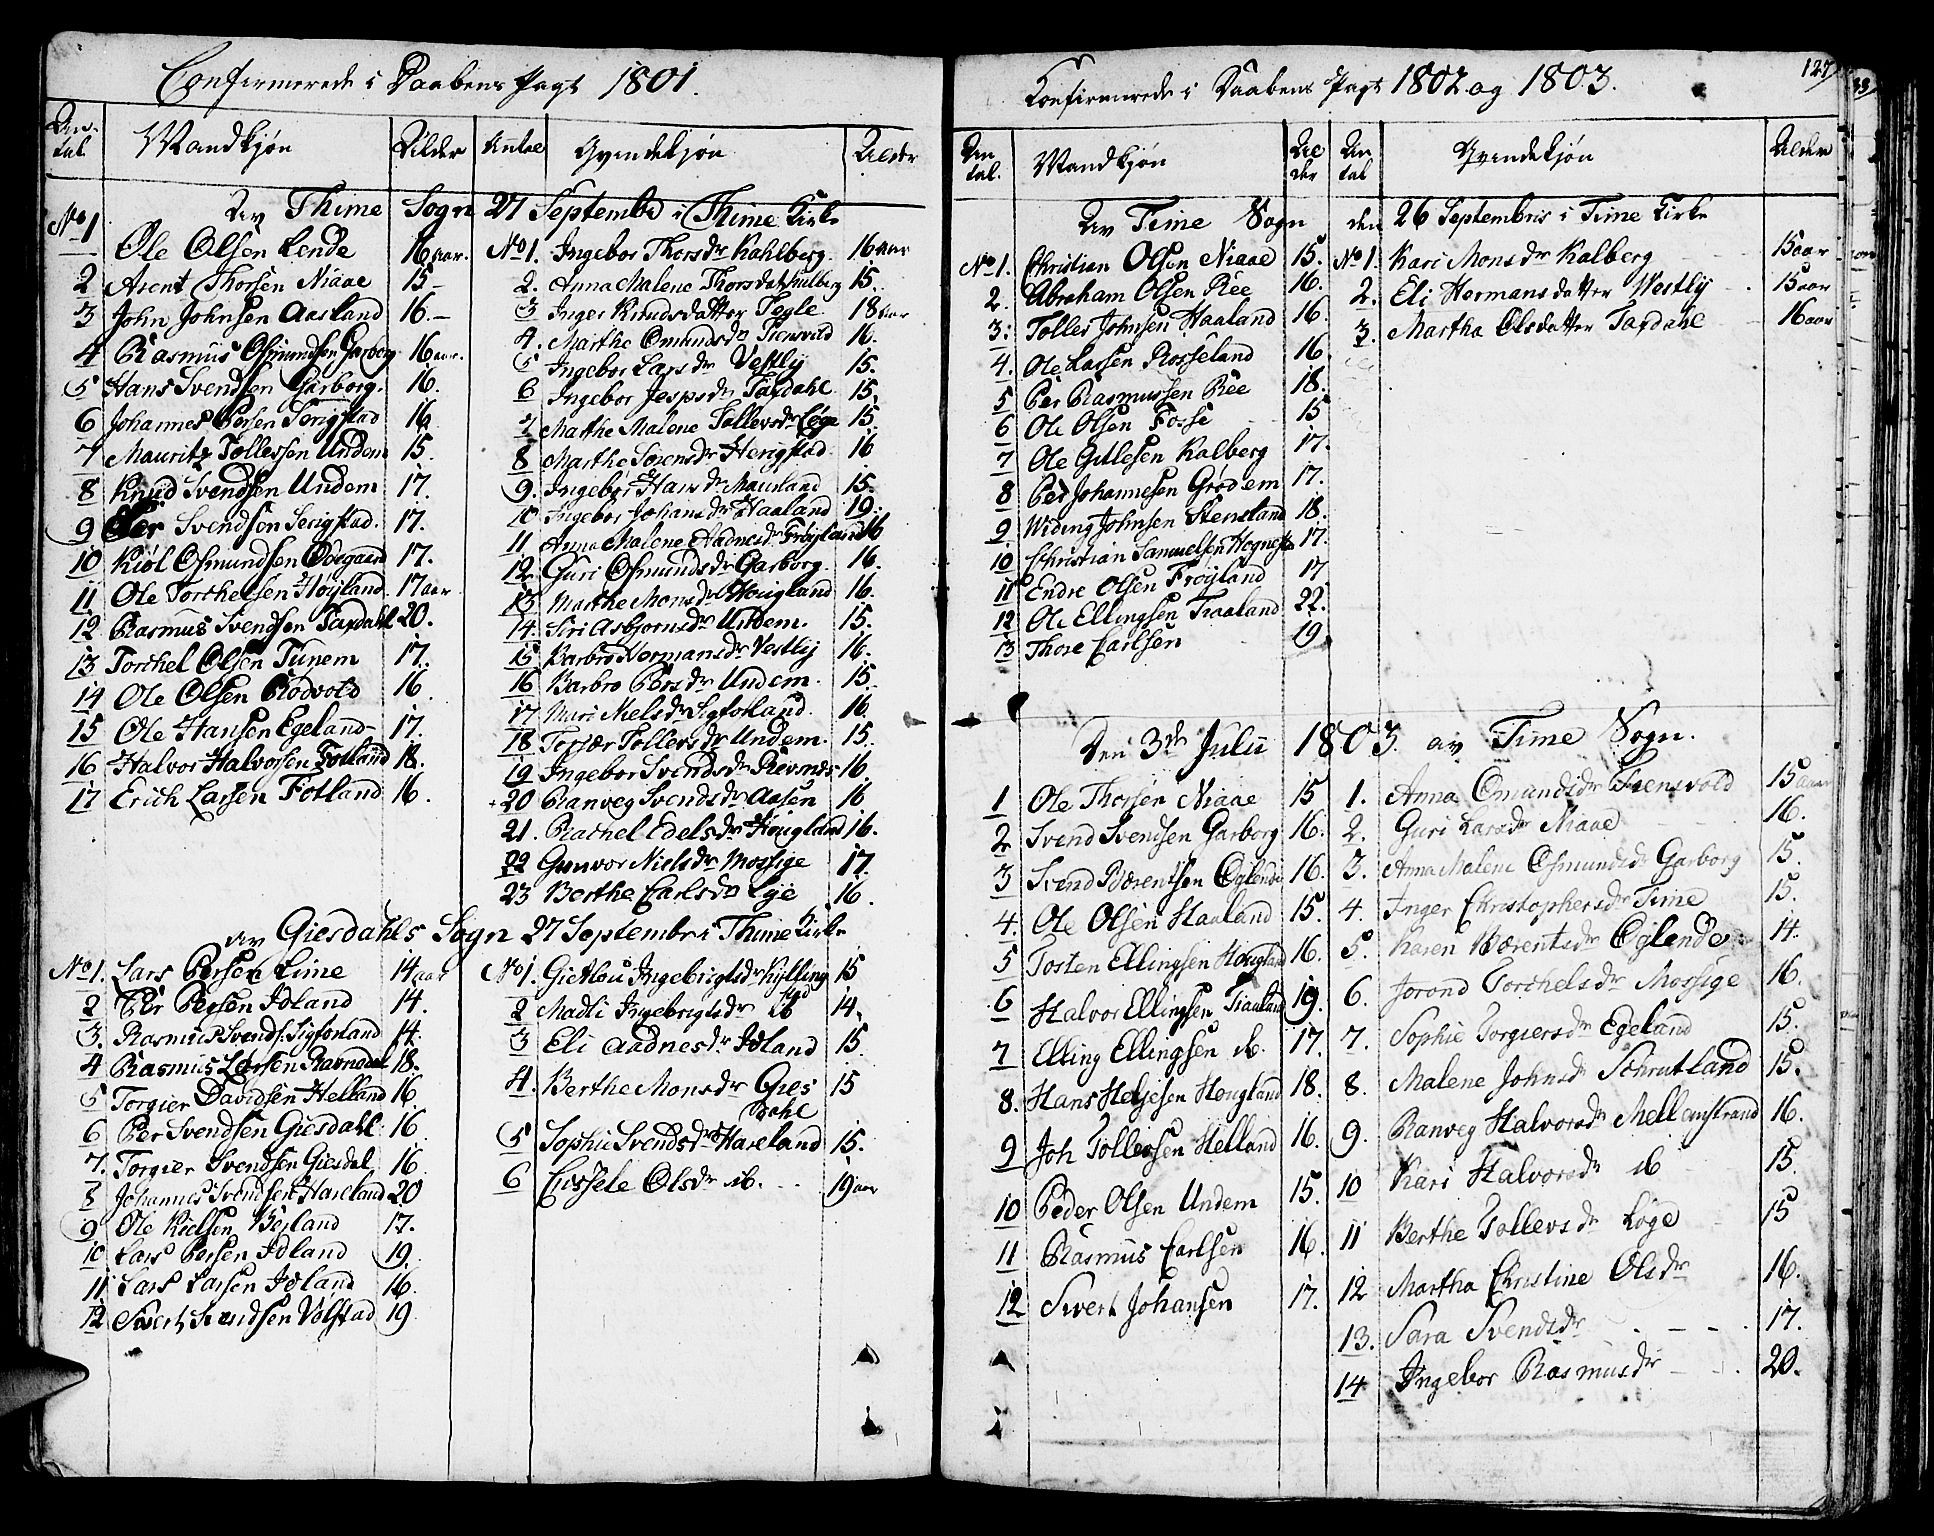 Confirmerede i Daabens Pagt 1801.
An-
tal. Mandkjøn Alder Antal Qvindekjøn Alder
Av Thime Sogn 27 Septemb i Thime Kirke
No 1 Ole Olsen Lende 16 aar.
2 Arent Thorsen Niaae 15 -
3 John Johnsen Aasland 16. -
4 Rasmus Osmundsen Garborg 16 aar.
5 Hans Svendsen Garborg. 16.
6 Johannes Persen Serigstad 16
7 Mauritz Tollefsen Undem 15.
8 Knud Svendsen Undem 17.
9 Per Svendsen Serigstad. 17.
10 Kiøl OsmundsenØdegaard 17.
11 Ole Torchelsen Høyland 17 aar
12 Rasmus Svendsen Taxdahl 20.
13 Torchel Olsen Tunem 17.
14 Ole Olsen Rødvold 16.
15 Ole Hansen Egeland 17.
16 Halvor Halvorsen Fotland 18.
17 Erich Larsen Fotland 16.
No 1. Ingebor Thorsdr Kahlberg. 16 aar
2. Anna Malene Thorsdatr Kalberg 15.
3 Inger Knudsdatter Tegle 18 aar
4. Marthe Omundsdr Tiensvold 16.
5 Ingebor Larsdr Vestly 15.
6 Ingebor Jespsdr Taxdahl 15.
7 Marthe Malene Tollevsdr Løge 15.
8 Marthe Sorensdr Herigstad 16
9. Ingebor Hansdr Mauland 15.
10 Ingebor Johansdr Haaland 19.
11 Anna Malene Aadnesdr Frøyland 16
12 Guri Osmundsdr Garborg. 16.
13 Marthe Monsdr Hougland 16.
14. Siri Asbjornsdr Undem. 15.
15 Barbro Hermansdr Vestly 16.
16 Barbro Persdr Undem. 15.
17 Mari Nielsdr Sigfotland. 16.
18 Torfær Tollevsdr Undem. 15.
19 Ingebor Svendsdr Revenes 16.
20 Ranveg Svendsdr Aasen 16
21. Rachel Edelsdr Hougland 16.
22 Gunvor Nielsdr Mossige 17.
23 Berthe Carlsdr Lye 16.
av Giesdahls Sogn 27 Septembr i Thime Kirke
No 1. Lars Persen Lime 14 aar
2 Per Persen Idland 14.
3. Rasmus Svends. Sigfotland 14.
4 Rasmus Larsen Ravndal 18.
5 Torgier Davidsen Helland 16
6 Per Svendsen Giesdahl 16
7. Torgier Svendsen Giesdal 16.
8 Johannes Svendsen Hareland 20
9 Ole Kielsen Biøland 17.
10 Lars Persen Idland 19.
11 Lars Larsen Idland 16.
12 Sivert Svendsen Vølstad 19
No 1. Gietlou Ingebrigtsdr Kylling
stad 15
2 Madli Ingebrigtsdr ib 14.
3 Eli Aadnesdr Idland 15
4. Berthe Monsdr Gies
dahl 15
5 Sophie Svendsdr Hareland 15.
6 Cissele Olsdr ib. 19 aar
127
Confirmerede i Daabens Pagt 1802. og 1803.
An
tal. Mandkjøn Al
der An
tal Qvindekjøn Alder
Av Time Sogn den 26 Septembris i Time Kirke
No 1. Christian Olsen Niaae 15.
2. Abraham Olsen Ree 16.
3. Tolles Johnsen Haaland 16.
4. Ole Larsen Rosseland 16.
5 Per Rasmussen Ree 18.
6 Ole Olsen Fosse 15
7 Ole Gitlesen Kalberg 17.
8 Per Johannesen Grødem 17.
9 Widing Johnsen Stensland 18.
10 Christian Samuelsen Hognestad 17.
11 Endre Olsen Frøyland 17
12 Ole Ellingsen Traaland 22.
13 Thore Carlsen 19.
No 1. Kari Monsdr Kalberg 15 aar
2. Eli Hermansdatter Westly 15 aar
3. Martha Olsdatter Taxdahl 16 aar
Den 3de Julii 1803. av Time Sogn.
1 Ole Thorsen Niaae 15
2 Svend Svendsen Garborg 16.
3 Svend Bærentsen Øglende 16.
4. Ole Olsen Haaland 15.
5 Tosten Ellingsen Hougland 16.
6 Halvor Ellingsen Traaland 19.
7 Elling Ellingsen ib. 17.
8. Hans Heljesen Hougland 18.
9 Joh Tollevsen Helland 16.
10 Peder Olsen Undem 15.
11 Rasmus Carlsen 16.
12 Sivert Johansen 17.
1. Anna Omundsdr Tiensvold 15 aar
2. Guri Larsdr Niaae 16.
3. Anna Malene Osmundsdr Garborg 15.
4. Inger Christophersdr Time 15.
5. Karen Bærentsdr Øglende 14.
6. Jorond Torchelsdr Mossige 16.
7. Sophie Torgiersdr Egeland 15.
8. Malene Johnsdr Schrutland 15.
9. Ranveg Halvorsdr Mellemstrand 16.
10 Kari Halvorsdr ib 15.
11 Berthe Tollevsdr Løge 15
12 Martha Christine Olsdr 16.
13. Sara Svendsdr 17.
14 Ingebor Rasmusdr 20.